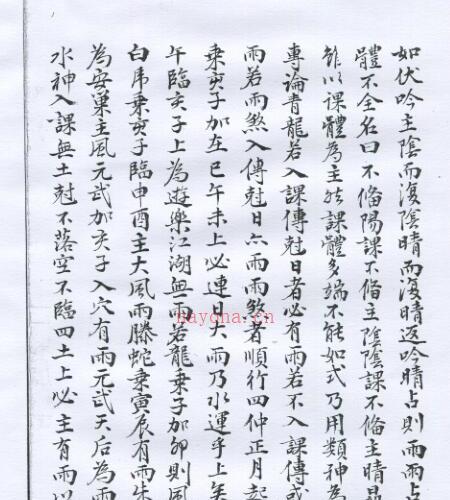 如伏吟主陰而復陰晴而復晴返吟晴占則雨雨占
體不全名曰不俻陽課不俻主陰陰課不俻主晴
雖以課體為主然課體多端不能如式乃用類神為
專論青龍若入課傳尅日者必有雨若不入課傳或
雨若雨煞入傳尅日亦雨雨煞者順行四仲正月起
乘亥子加在巳午未上必連日大雨乃水運乎上
午臨亥子上為遊樂江湖無雨若龍乘子加卯則風
白虎乘亥子臨申酉主大風雨騰蛇乘寅辰有雨朱
為安巢主風元武加亥子入穴有雨元武天后為雨
水神入課無土尅不落空不臨四土上必主有雨以
nayona.cn